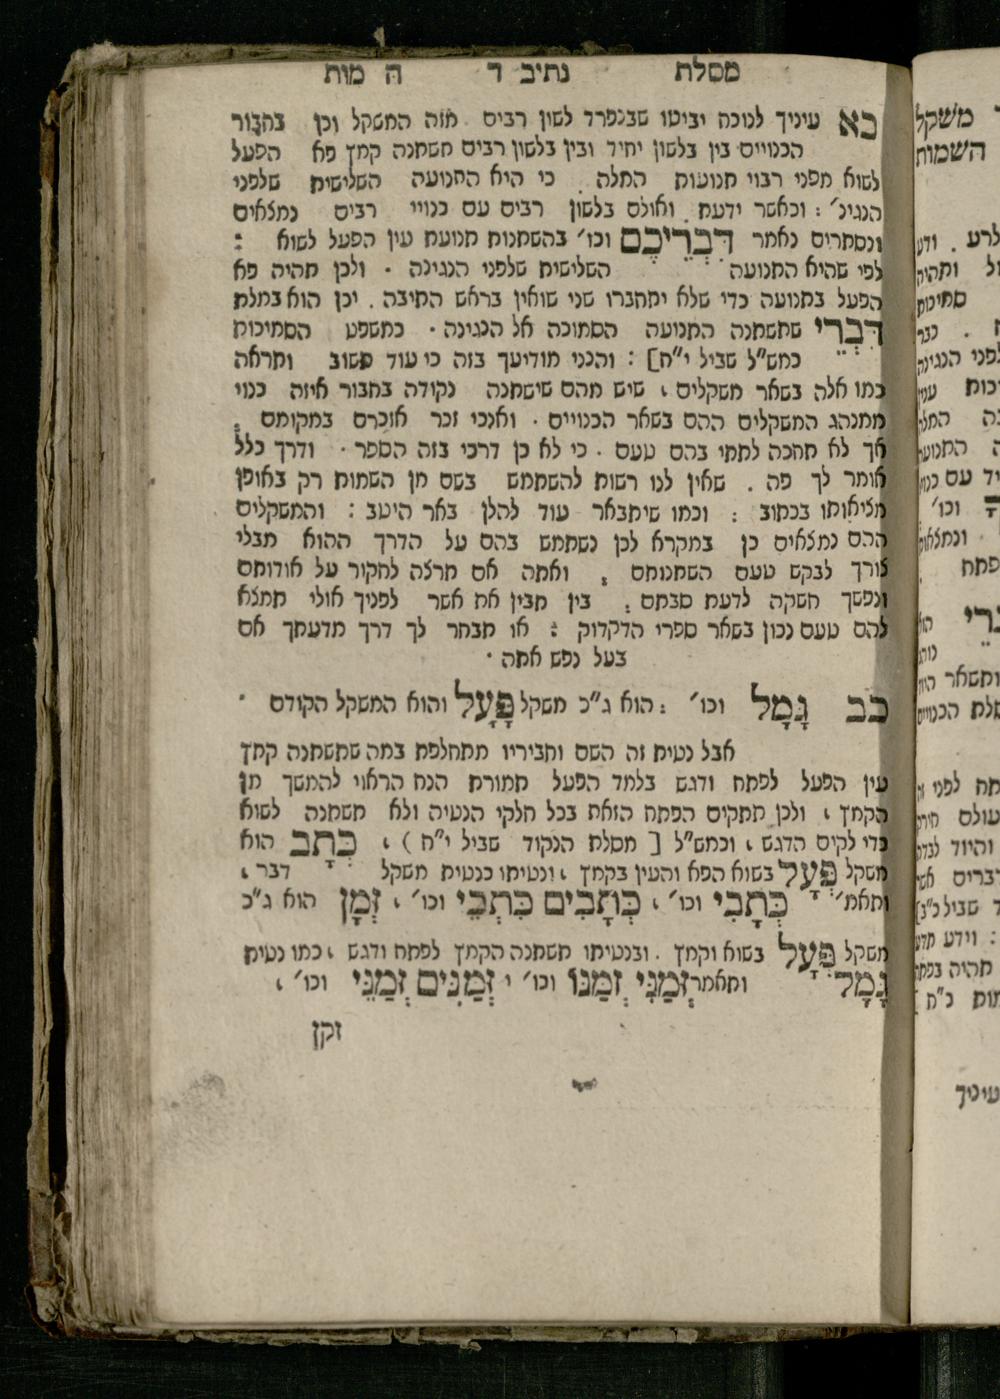 מסלת נתיב ד ה מות
כא עיניך לנוכח יביטו שבנפרד לשון רבים מזה המשקל וכן בחבור
הכנויים בין בלשון יחיד ובין בלשון רבים תשתנה קמץ פא הפעל
לשוא מפני רבוי תנועות המלה . כי היא התנועה השלישית שלפני
הנגינ׳ : וכאשר ידעת . ואולם בלשון רבים עם כנויי רבים נמצאים
ונסתרים נאמר דִּבְרֵיכֶם וכו׳ בהשתנות תנועת עין הפעל לשוא :
לפי שהיא התנועה השלישית שלפני הנגינה . ולכן תהיה פא
הפעל בתנועה כדי שלא יתחברו שני שואין בראש התיבה . וכן הוא במלת
דִּבְרֵי שתשתנה התנועה הסמוכה אל הנגינה . כמשפט הסמיכות
כמש״ל שביל י״ח] : והנני מודיעך בזה כי עוד תשוב ותראה
כמו אלה בשאר משקלים , שיש מהם שישתנה נקודה בחבור איזה כנוי
ממנהג המשקלים ההם בשאר הכנויים . ואנכי זכר אזכרם במקומם :
אך לא תחכה לתתי בהם טעם . כי לא כן דרכי בזה הספר . ודרך כלל
אומר לך פה . שאין לנו רשות להשתמש בשם מן השמות רק באופן
מציאותו בכתוב : וכמו שיתבאר עוד להלן באר היטב : והמשקלים
ההם נמצאים כן במקרא לכן נשתמש בהם על הדרך ההוא מבלי
צורך לבקש טעם השתנותם : ואתה אם תרצה לחקור על אודותם
ונפשך חשקה לדעת סבתם : בין תבין את אשר לפניך אולי תמצא
להם טעם נכון בשאר ספרי הדקדוק : או תבחר לך דרך מדעתך אם
בעל נפש אתה .
כב גָּמָל וכו׳ : הוא ג״כ משקל פָּעָל והוא המשקל הקודם .
אבל נטית זה השם וחביריו מתחלפת במה שתשתנה קמץ
עין הפעל לפתח ודגש בלמד הפעל תמורת הנח הראוי להמשך מן
הקמץ , ולכן תתקיים הפתח הזאת בכל חלקי הנטיה ולא תשתנה לשוא
כדי לקיים הדגש , וכמש״ל [ מסלת הנקוד שביל י״ח ) , כְּתָב הוא
משקל פְּעָל בשוא הפא והעין בקמץ , ונטיתו כנטית משקל דבר ,
ותאמ׳ כְּתָבִי וכו׳ , כְּתָבִים כִּתְבֵי וכו׳ , זְמָן הוא ג״כ
משקל פְּעָל בשוא וקמץ . ובנטיתו תשתנה הקמץ לפתח ודגש , כמו נטית
גָּמָל ותאמר זְמַנִּי זְמַנּוֹ וכו׳ , זְמַנִּים זְמַנֵּי וכו׳ ,
זקן